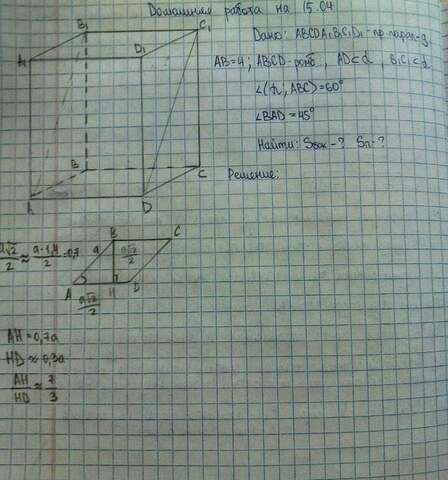 Домашняя работа на 15.04
Дано: ABCDA₁B₁C₁D₁ - пр. парал-д
AB=4; ABCD-ромб, AD⊂α, B₁C₁⊂α
∠(α, ABC)=60°
∠BAD=45°
Найти: Sбок-? Sп-?
Решение:
B₁ C₁
A₁ D₁
B C
A D
a√2/2 ≈ a·1,4/2 = 0,7
B C
a a√2/2
A H D
a√2/2
AH=0,7a
HD≈0,3a
AH/HD ≈ 7/3